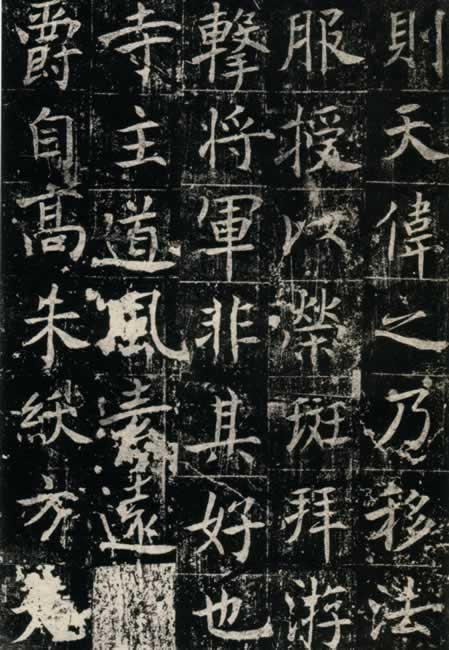 則天偉之乃移法
服授以榮班拜游
擊將軍非其好也
寺主道風素遠
爵自高朱紱方